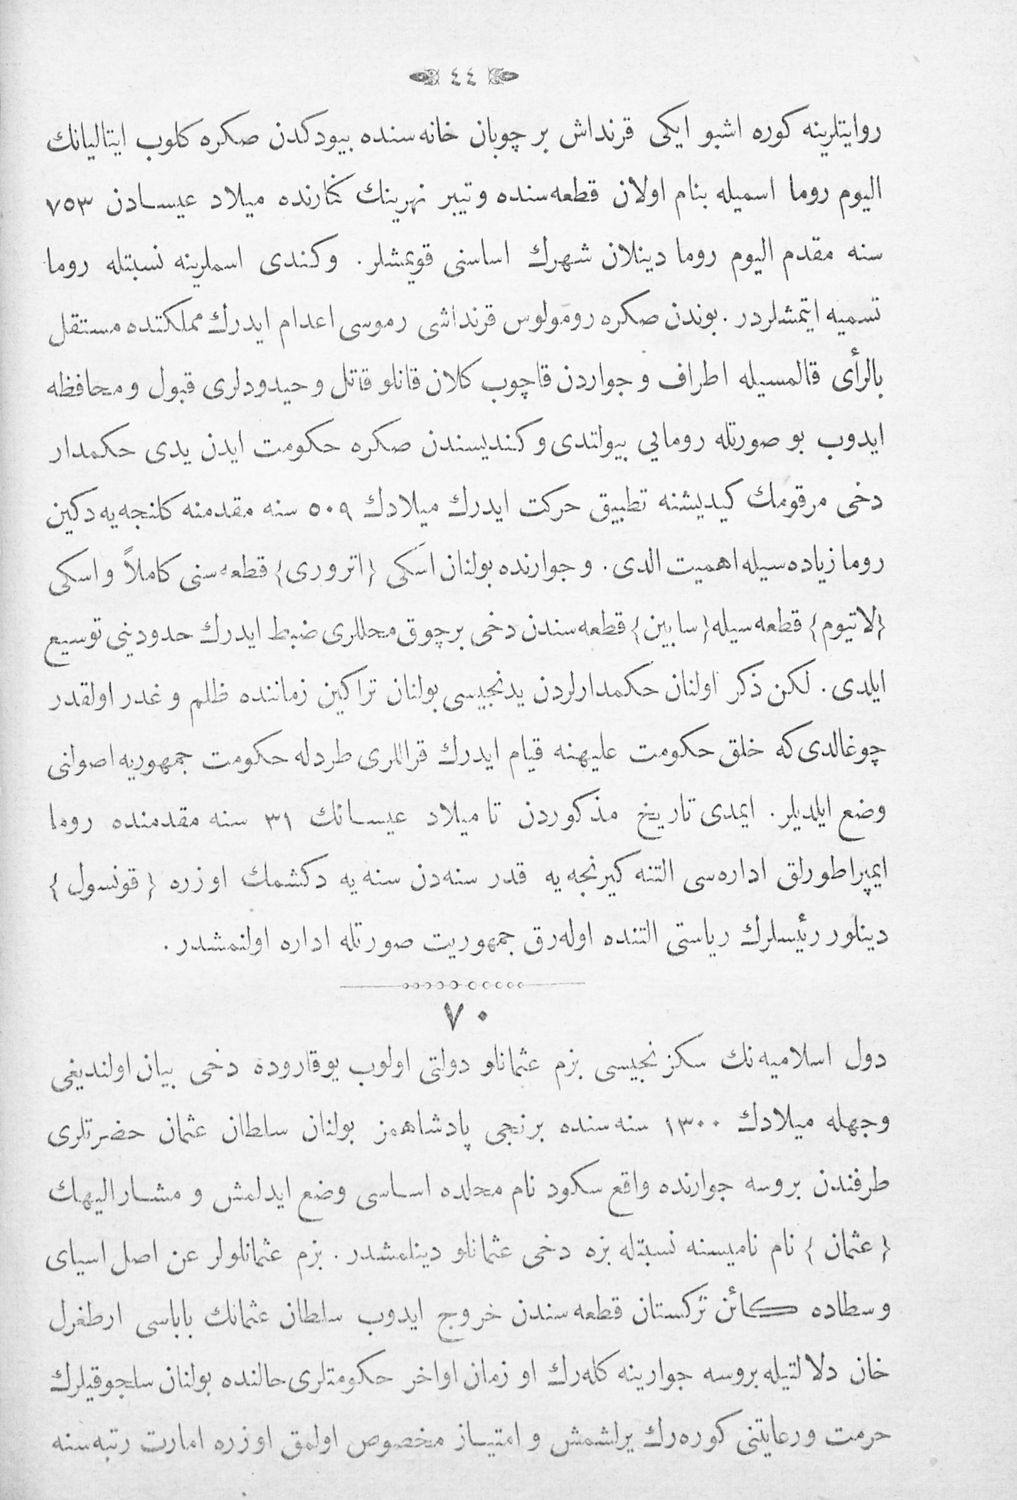 ٤٤
روايتلرينه كوره اشبو ايكى قرنداش بر چوبان خانه‌سنده بيودكدن صكره كلوب ايتاليانك
اليوم روما اسميله بنام اولان قطعه‌سنده و تيبر نهرينك كنارنده ميلاد عيسادن ٧٥٣
سنه مقدم اليوم روما دينلان شهرك اساسنى قويمشلر. وكندى اسملرينه نسبتله روما
تسميه ايتمشلردر. بوندن صكره رومولوس قرنداشى رموسى اعدام ايدرك مملكتده مستقل
بالرأى قالمسيله اطراف و جواردن قاچوب كلان قانلو قاتل و حيدودلرى قبول و محافظه
ايدوب بو صورتله رومايى بيولتدى و كنديسندن صكره حكومت ايدن يدى حكمدار
دخى مرقومك كيديشنه تطبيق حركت ايدرك ميلادك ٥٠٩ سنه مقدمنه كلنجه‌يه‌دكين
روما زياده‌سيله اهميت الدى. و جوارنده بولنان اسكى {اترورى} قطعه‌سنى كاملاً و اسكى
{لاتيوم} قطعه‌سيله {سابين} قطعه‌سندن دخى برچوق محللرى ضبط ايدرك حدودينى توسيع
ايلدى. لكن ذكر اولنان حكمدارلردن يدنجيسى بولنان تراكين زماننده ظلم و غدر اولقدر
چوغالدى‌كه خلق حكومت عليهنه قيام ايدرك قراللرى طردله حكومت جمهوريه اصولنى
وضع ايلديلر. ايمدى تاريخ مذكوردن تا ميلاد عيسانك ٣١ سنه مقدمنده روما
ايمپراطورلق اداره‌سى التنه كيرنجه‌يه قدر سنه‌دن سنه‌يه دكشمك اوزره {قونسول}
دينلور رئيسلرك رياستى التنده اوله‌رق جمهوريت صورتله اداره اولنمشدر.
٧٠
دول اسلاميه‌نك سكزنجيسى بزم عثمانلو دولتى اولوب يوقاروده دخى بيان اولنديغى
وجهله ميلادك ١٣٠٠ سنه‌سنده برنجى پادشاهمز بولنان سلطان عثمان حضرتلرى
طرفندن بروسه جوارنده واقع سكود نام محلده اساسى وضع ايدلمش و مشاراليهك
{عثمان} نام ناميسنه نسبتله بزه دخى عثمانلو دينلمشدر. بزم عثمانلولر عن اصل اسياى
وسطاده كائن تركستان قطعه‌سندن خروج ايدوب سلطان عثمانك باباسى ارطغرل
خان دلالتيله بروسه جوارينه كله‌رك او زمان اواخر حكومتلرى حالنده بولنان سلجوقيلرك
حرمت و رعايتنى كوره‌رك يراشمش و امتياز مخصوص اولمق اوزره امارت رتبه‌سنه